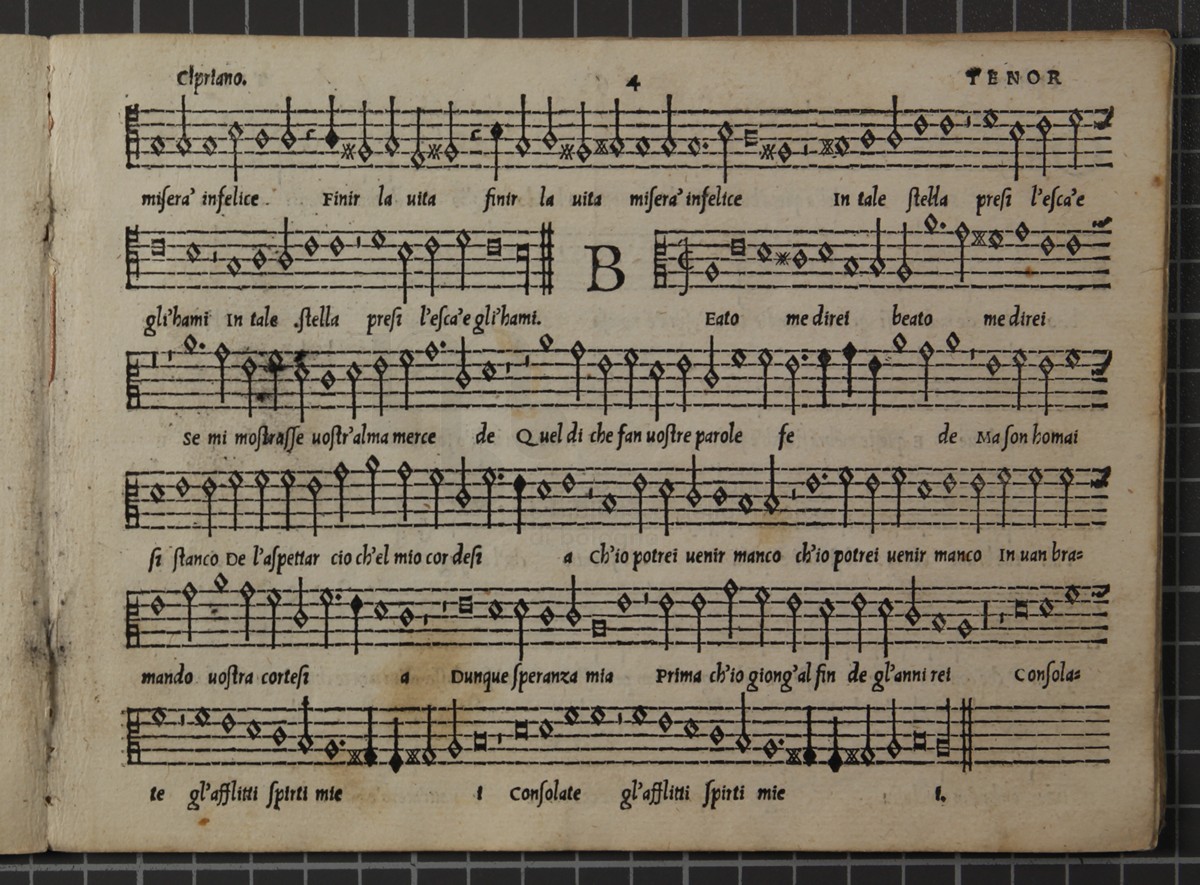 Cipriano. 4 TENOR
misera' infelice. Finir la uita finir la uita misera' infelice In tale stella presi l'esca'e
gli'hami In tale stella presi l'esca'e gli'hami. B Eato me direi beato me direi
Se mi mostrasse uostr'alma merce de Quel di che fan uostre parole fe de Ma son homai
si stanco De l'aspettar cio ch'el mio cor desi a Ch'io potrei uenir manco ch'io potrei uenir manco In uan bra=
mando uostra cortesi a Dunque speranza mia Prima ch'io giong'al fin de gl'anni rei Consola=
te gl'afflitti spirti mie i Consolate gl'afflitti spirti mie i.